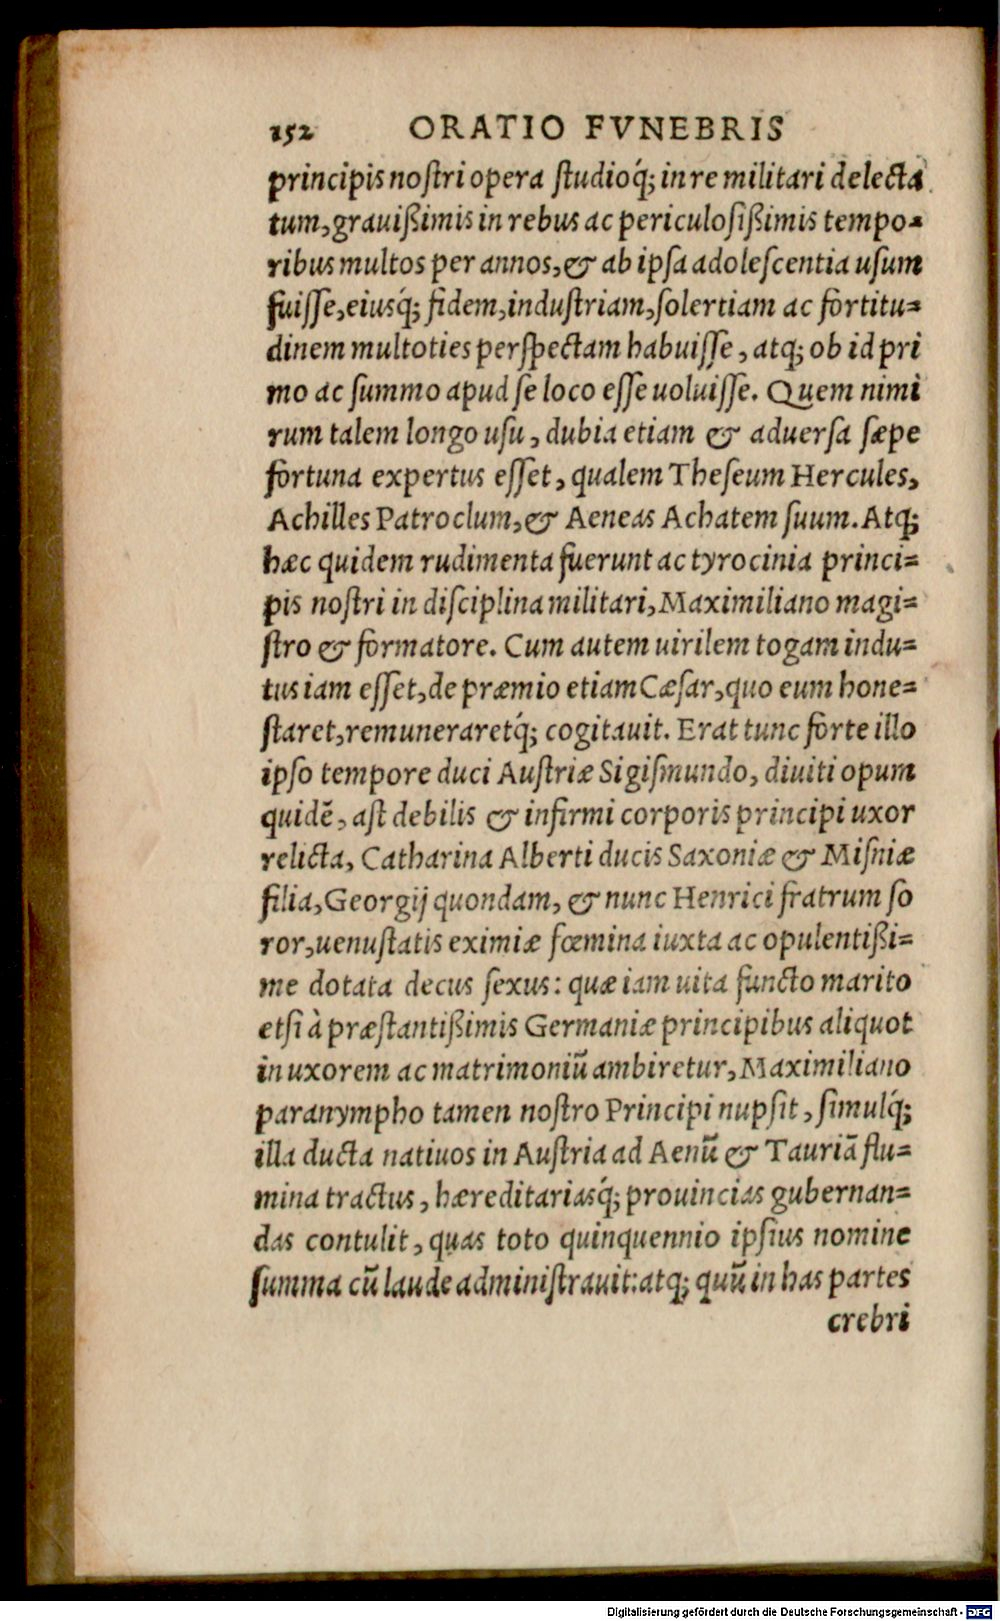 152 ORATIO FVNEBRIS
principis noſtri opera ſtudioq́; in re militari delecta
tum, grauißimis in rebus ac periculoſißimis tempo-
ribus multos per annos, & ab ipſa adoleſcentia uſum
fuiſſe, eiusq́; fidem, induſtriam, ſolertiam ac fortitu-
dinem multoties perſpectam habuiſſe, atq; ob id pri
mo ac ſummo apud ſe loco eſſe uoluiſſe. Quem nimi
rum talem longo uſu, dubia etiam & aduerſa ſæpe
fortuna expertus eſſet, qualem Theſeum Hercules,
Achilles Patroclum, & Aeneas Achatem ſuum. Atq;
hæc quidem rudimenta fuerunt ac tyrocinia princi-
pis noſtri in diſciplina militari, Maximiliano magi-
ſtro & formatore. Cum autem uirilem togam indu-
tus iam eſſet, de præmio etiam Cæſar, quo eum hone-
ſtaret, remuneraretq́; cogitauit. Erat tunc forte illo
ipſo tempore duci Auſtriæ Sigiſmundo, diuiti opum
quidẽ, aſt debilis & infirmi corporis principi uxor
relicta, Catharina Alberti ducis Saxoniæ & Miſniæ
filia, Georgij quondam, & nunc Henrici fratrum ſo
ror, uenuſtatis eximiæ fœmina iuxta ac opulentißi-
me dotata decus ſexus: quæ iam uita functo marito
etſi à præſtantißimis Germaniæ principibus aliquot
in uxorem ac matrimoniũ ambiretur, Maximiliano
paranympho tamen noſtro Principi nupſit, ſimulq́;
illa ducta natiuos in Auſtria ad Aenũ & Tauriã flu-
mina tractus, hæreditariasq́; prouincias gubernan-
das contulit, quas toto quinquennio ipſius nomine
ſumma cũ laude adminiſtrauit: atq; quũ in has partes
crebri
Digitalisierung gefördert durch die Deutsche Forschungsgemeinschaft - DFG